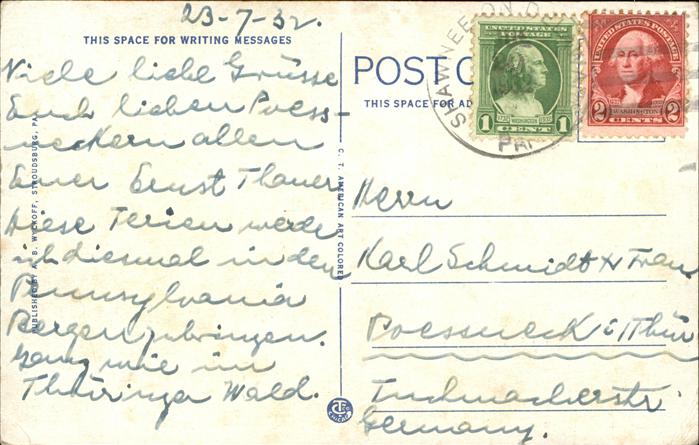 23-7-32.
THIS SPACE FOR WRITING MESSAGES
Viele liebe Grüsse
Euch lieben Poess-
neckern allen
Euer Ernst Thauer
Diese Ferien werde
ich diesmal in den
Pennsylvania
Bergen zubringen.
Ganz wie im
Thüringa Wald.
PUBLISHED BY A. B. WYCKOFF, STROUDSBURG, PA.
C. T. AMERICAN ART COLORED
POST C
THIS SPACE FOR AD
SHAWNEE ON D
PA
UNITED STATES POSTAGE
1732 WASHINGTON 1932
1 CENT 1
UNITED STATES POSTAGE
WASHINGTON
2 CENTS 2
Herrn
Karl Schmidt & Frau
Poessneck i/Thür
Tuchmacherstr.
Germany.